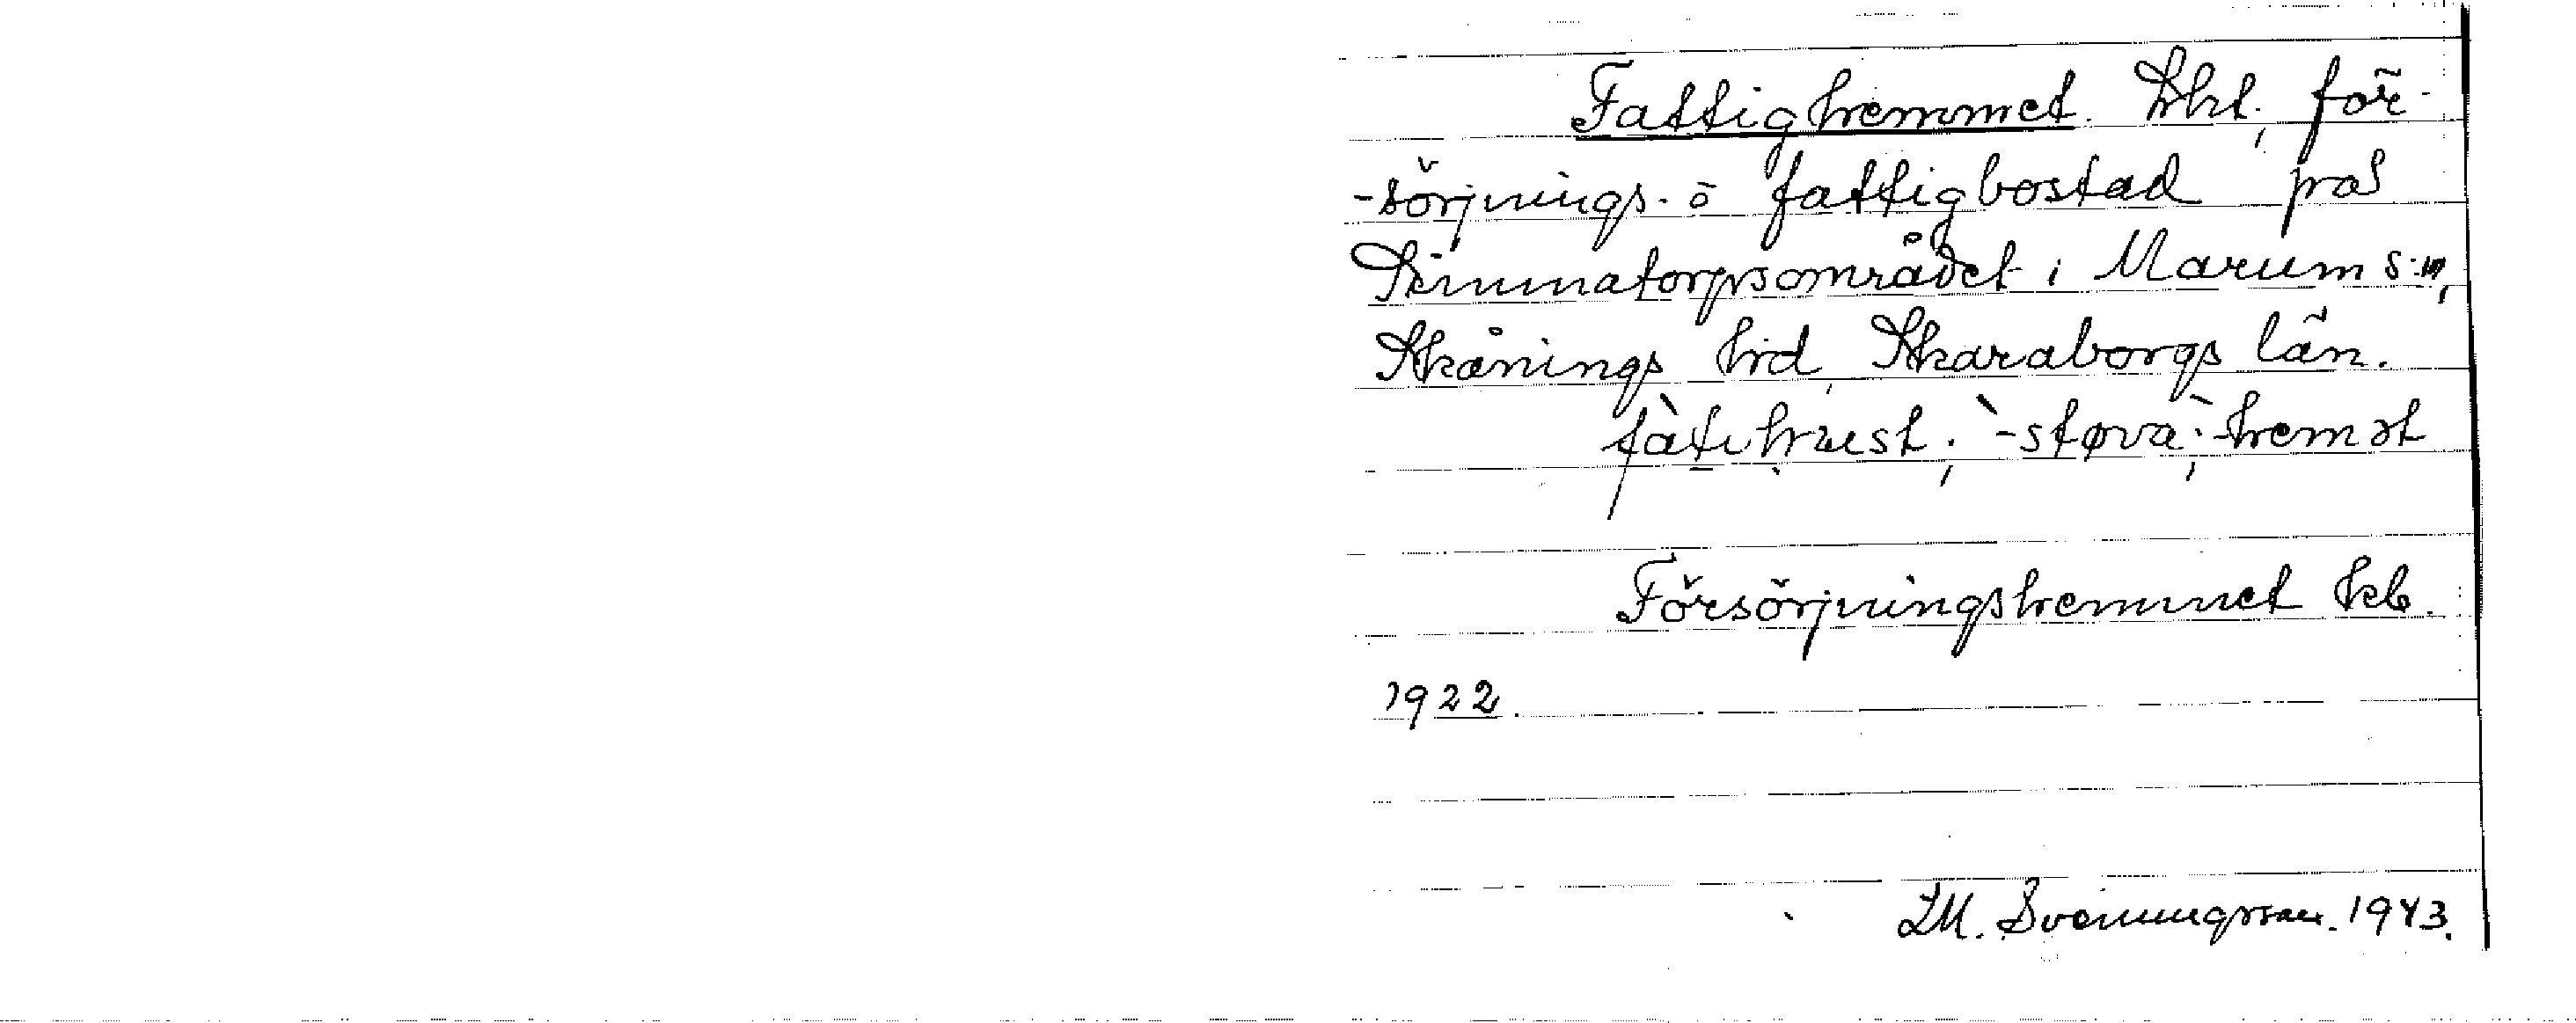 Fattighemmet. Lht, för-
-sörjnings- o fattigbostad på
Simmatorpsområdet i Marum s:n,
Skånings hd, Skaraborgs län.
fàtihust; `-støva; `-hemət
Försörjningshemmet kb.
1922.
LM. Svenungsson. 1943.